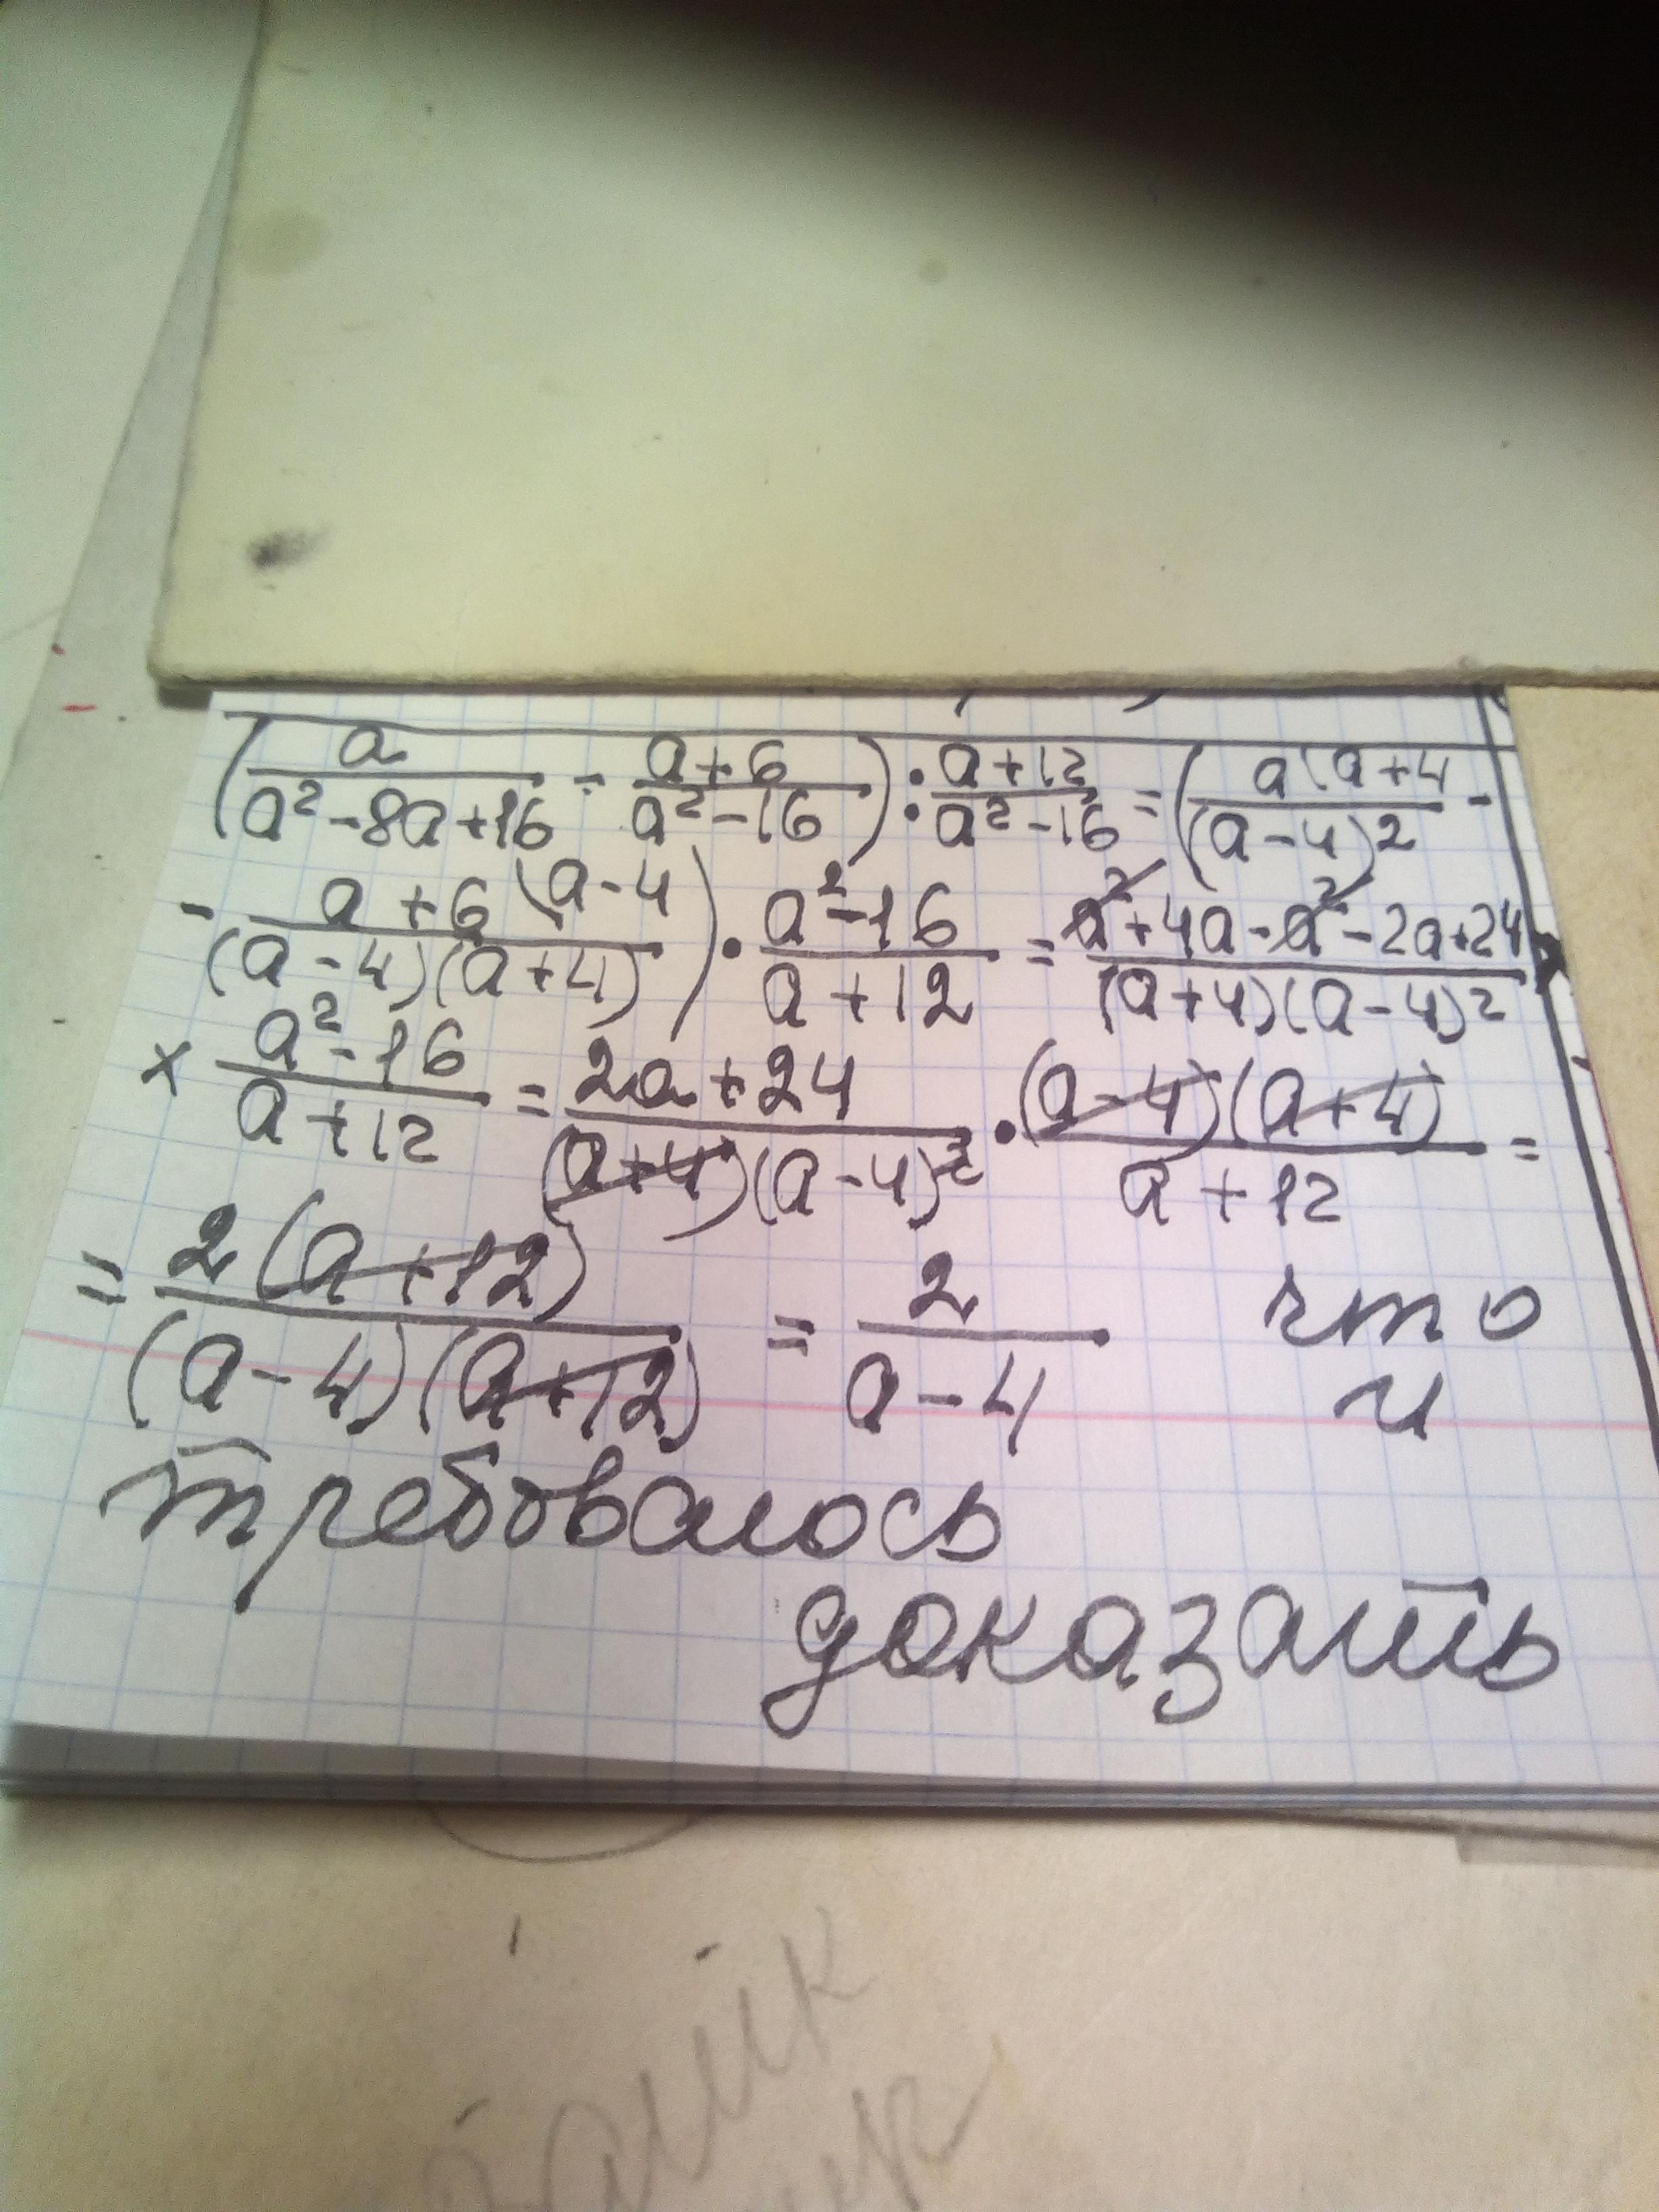 (a/(a²-8a+16) - (a+6)/(a²-16)) : (a+12)/(a²-16) = (a(a+4/(a-4)² -
- a+6(a-4/(a-4)(a+4)) · (a²-16)/(a+12) = (a²+4a-a²-2a+24)/((a+4)(a-4)²)
× (a²-16)/(a+12) = (2a+24)/((a+4)(a-4)²) · ((a-4)(a+4))/(a+12) =
= 2(a+12)/((a-4)(a+12)) = 2/(a-4) что
и
требовалось
доказать